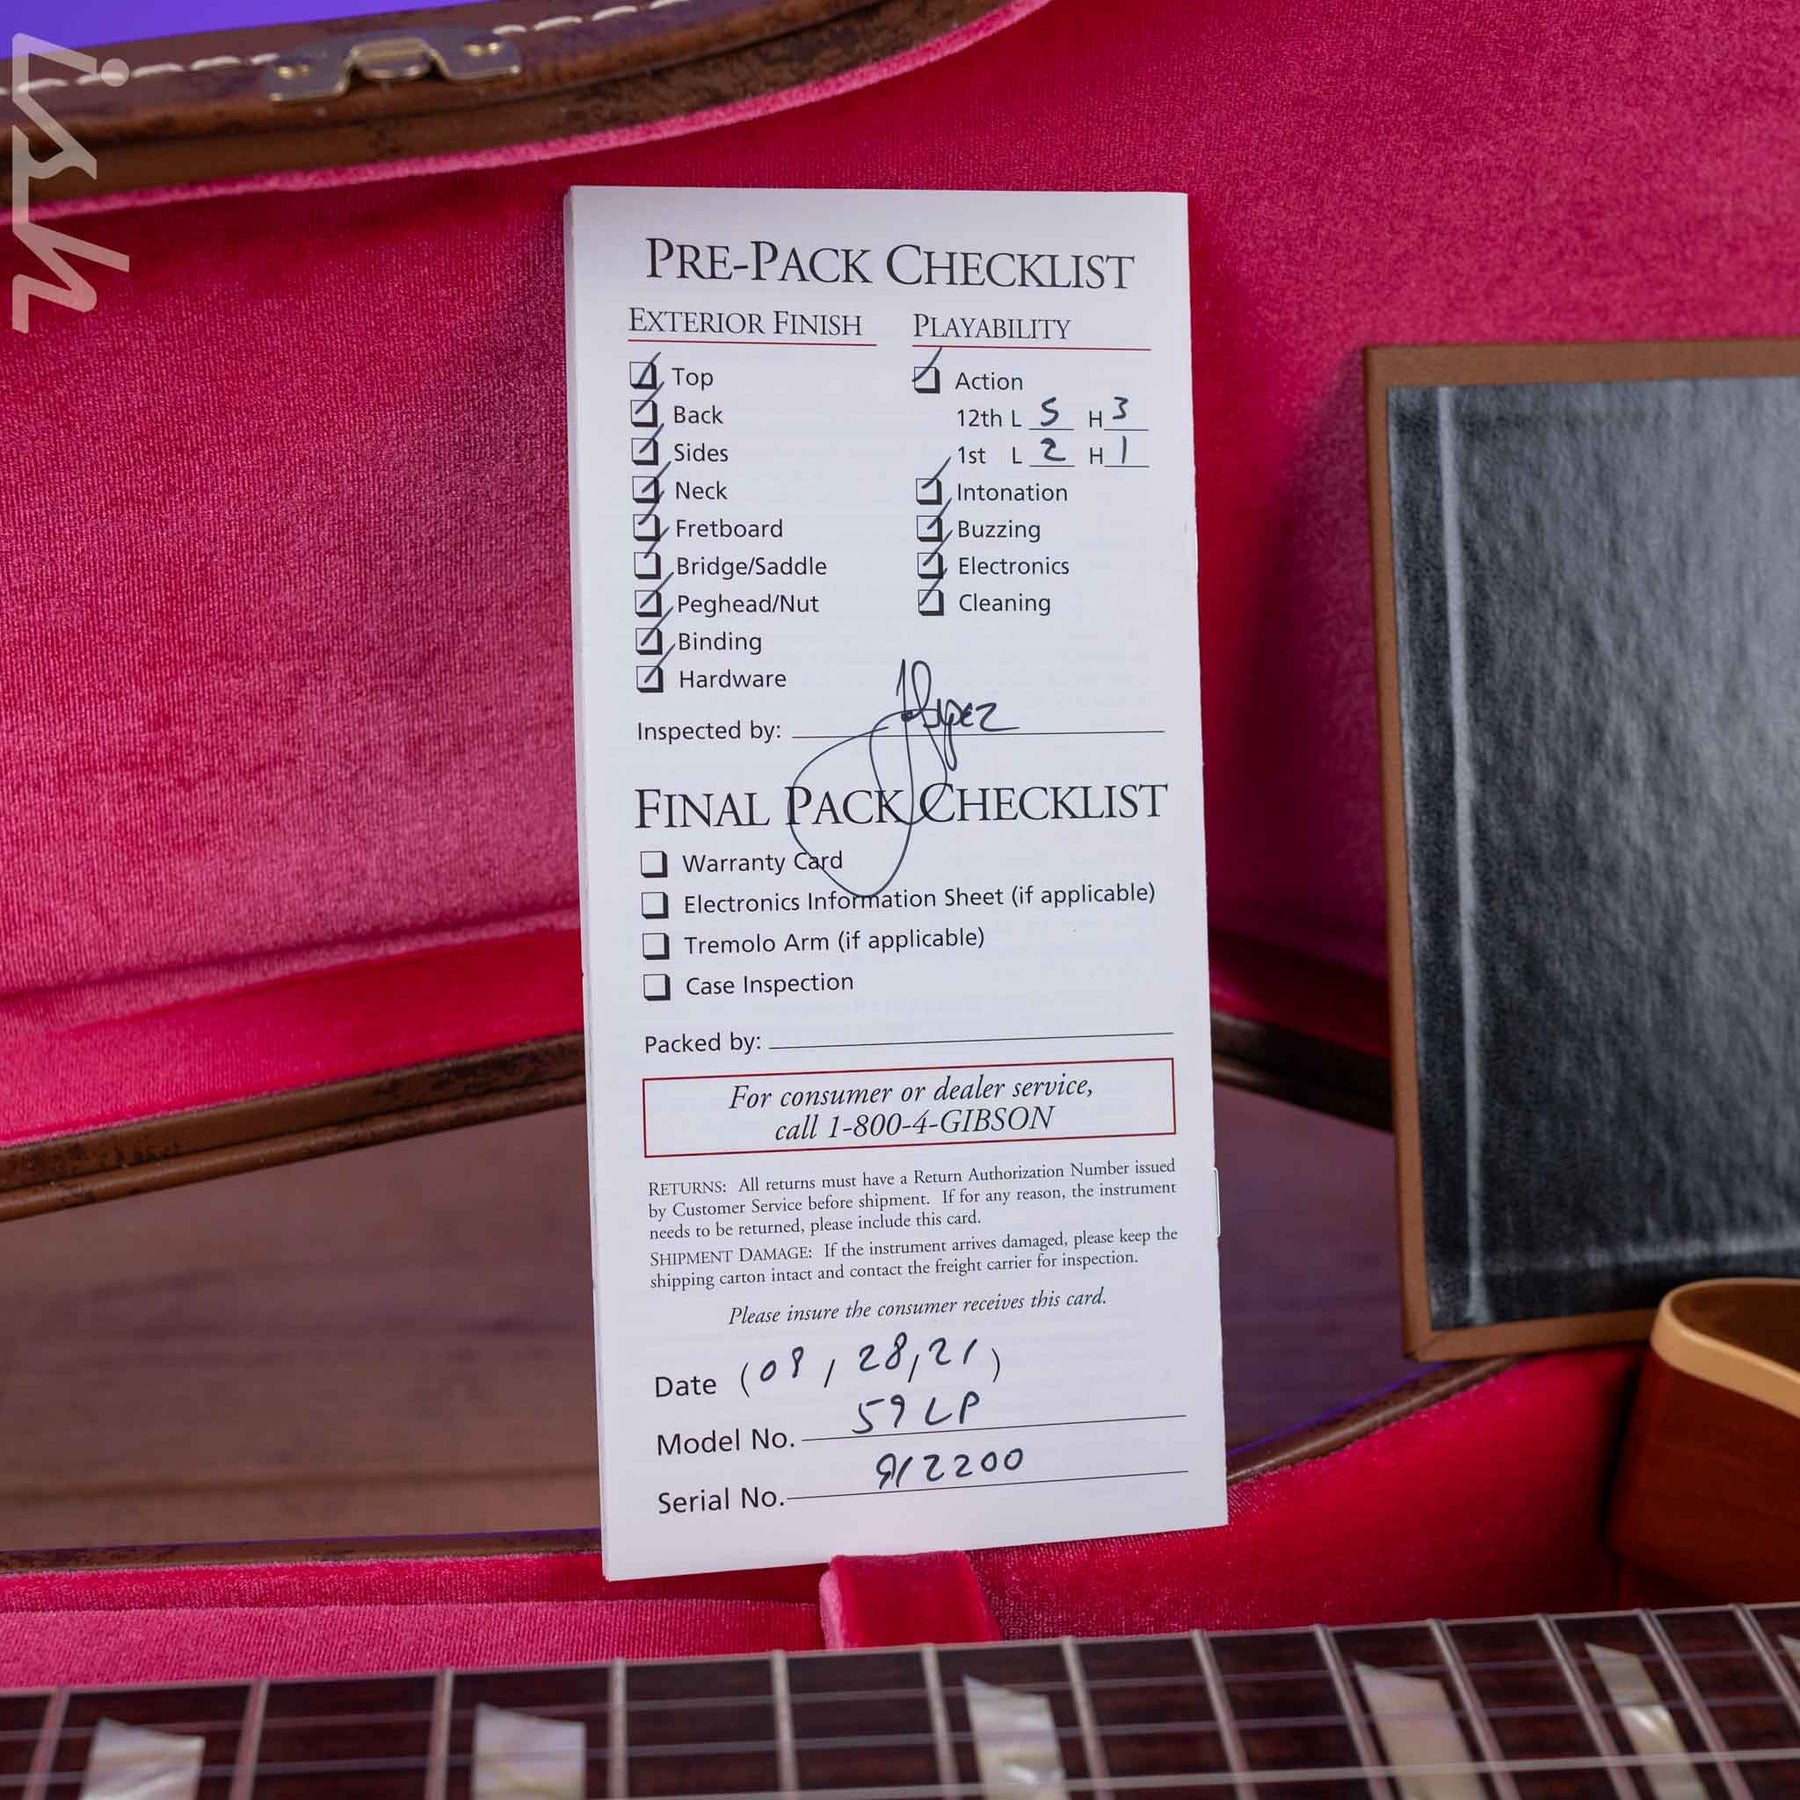 ish
PRE-PACK CHECKLIST
EXTERIOR FINISH
Top
Back
Sides
Neck
Fretboard
Bridge/Saddle
Peghead/Nut
Binding
Hardware
PLAYABILITY
Action
12th L 5 H 3
1st L 2 H 1
Intonation
Buzzing
Electronics
Cleaning
Inspected by:
FINAL PACK CHECKLIST
Warranty Card
Electronics Information Sheet (if applicable)
Tremolo Arm (if applicable)
Case Inspection
Packed by:
For consumer or dealer service,
call 1-800-4-GIBSON
RETURNS: All returns must have a Return Authorization Number issued
by Customer Service before shipment. If for any reason, the instrument
needs to be returned, please include this card.
SHIPMENT DAMAGE: If the instrument arrives damaged, please keep the
shipping carton intact and contact the freight carrier for inspection.
Please insure the consumer receives this card.
Date (09 / 28, 21)
Model No. 59 LP
Serial No. 912200